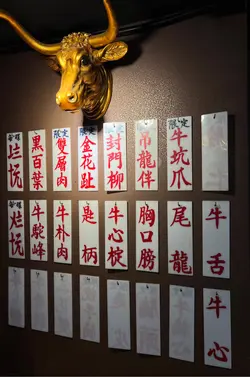 黑百葉
限定
雙層肉
限定
金花趾
限定
封門柳
吊龍伴
限定
牛坑爪
牛駝峰
牛朴肉
是柄
牛心椗
胸口膀
尾龍
牛舌
牛心